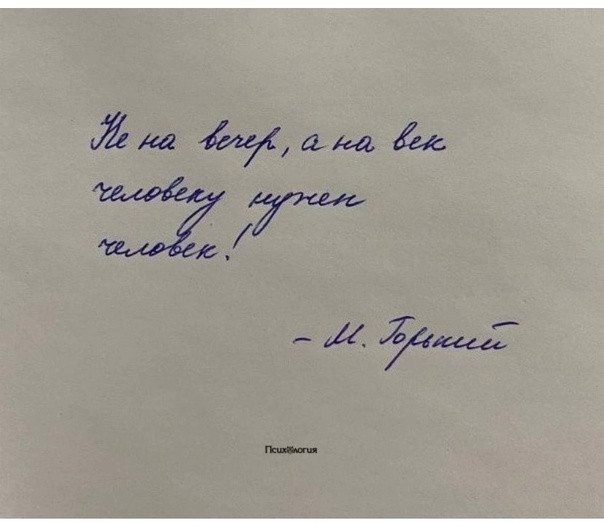 Не на вечер, а на век
человеку нужен
человек!
– М. Горький
Психология